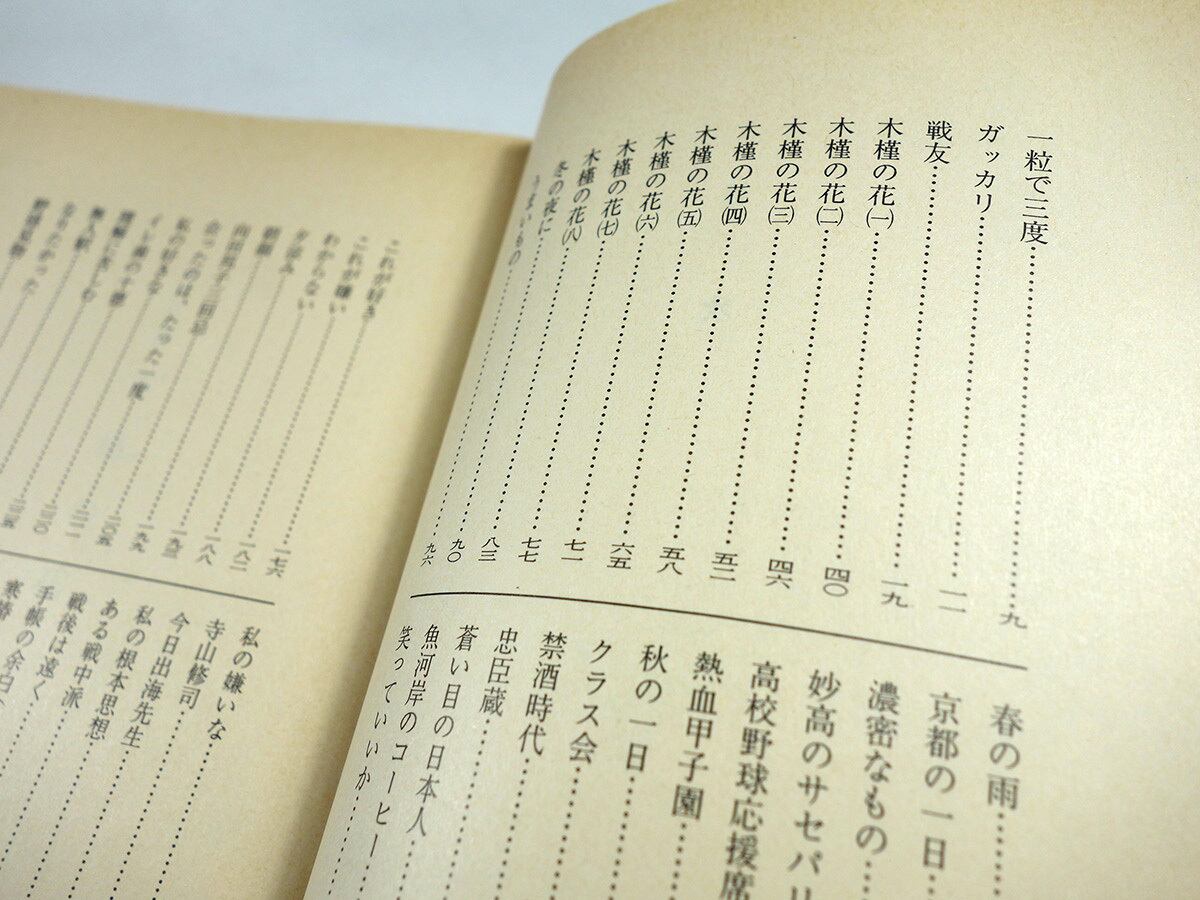 一粒で三度……九
ガッカリ……一一
戦友……一九
木槿の花㈠……四〇
木槿の花㈡……四六
木槿の花㈢……五二
木槿の花㈣……五八
木槿の花㈤……六五
木槿の花㈥……七一
木槿の花㈦……七七
木槿の花㈧……八三
冬の夜に……九〇
うまいもの……九六
春の雨
京都の一日
濃密なもの
妙高のサセパリ
高校野球応援席
熱血甲子園
秋の一日
クラス会
禁酒時代
忠臣蔵
蒼い目の日本人
魚河岸のコーヒー
笑っていいか
これが好き……一七六
これが嫌い……一八二
わからない……一八八
夕涼み……一九三
会ったのは、たった一度
私の好きな
なりたかった
私の嫌いな
寺山修司
今日出海先生
私の根本思想
ある戦中派
戦後は遠く
手帳の余白